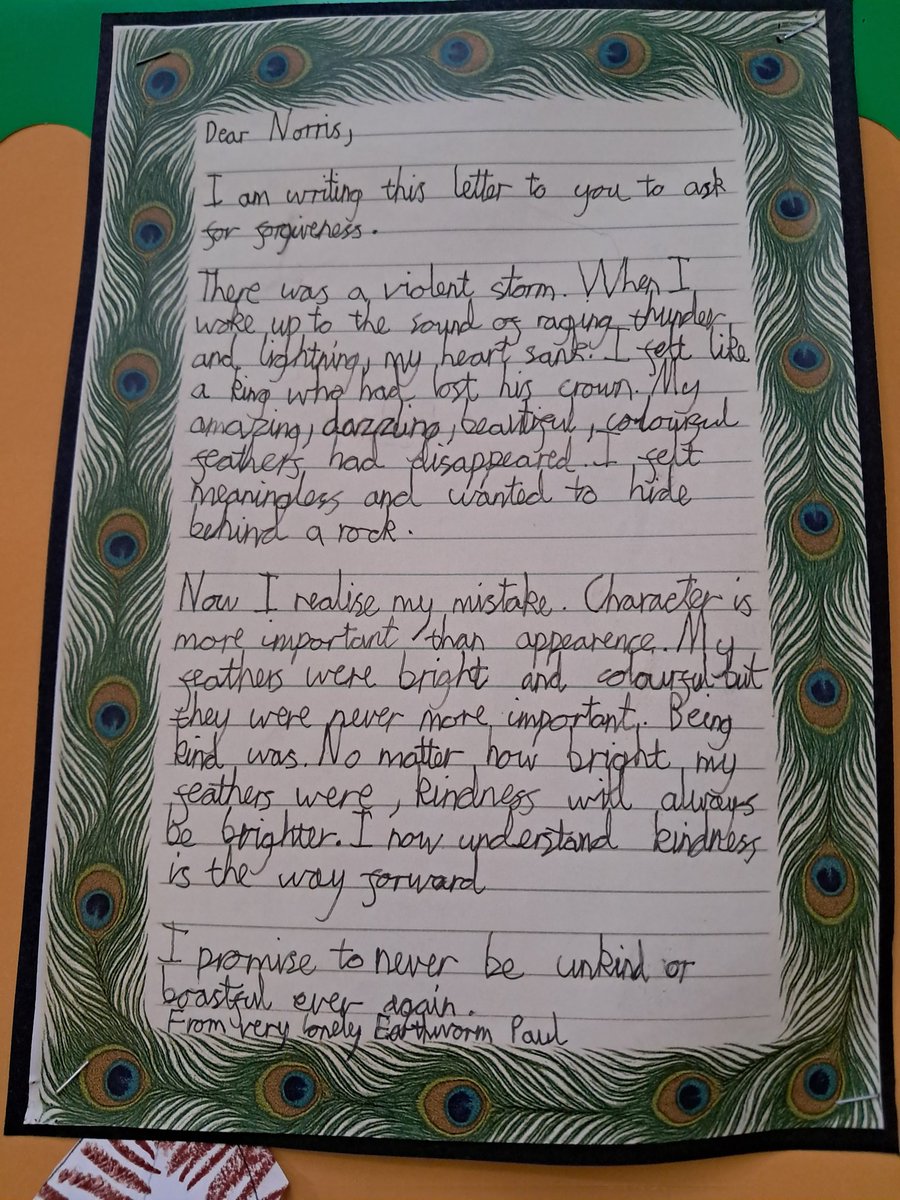 Dear Norris,
I am writing this letter to you to ask
for forgiveness.
There was a violent storm. When I
woke up to the sound of raging thunder
and lightning, my heart sank. I felt like
a king who had lost his crown. My
amazing, dazzling, beautiful, colourful
feathers had disappeared. I felt
meaningless and wanted to hide
behind a rock.
Now I realise my mistake. Character is
more important than appearence. My
feathers were bright and colourful but
they were never more important. Being
kind was. No matter how bright my
feathers were, kindness will always
be brighter. I now understand kindness
is the way forward
I promise to never be unkind or
boastful ever again.
From very lonely Earthworm Paul